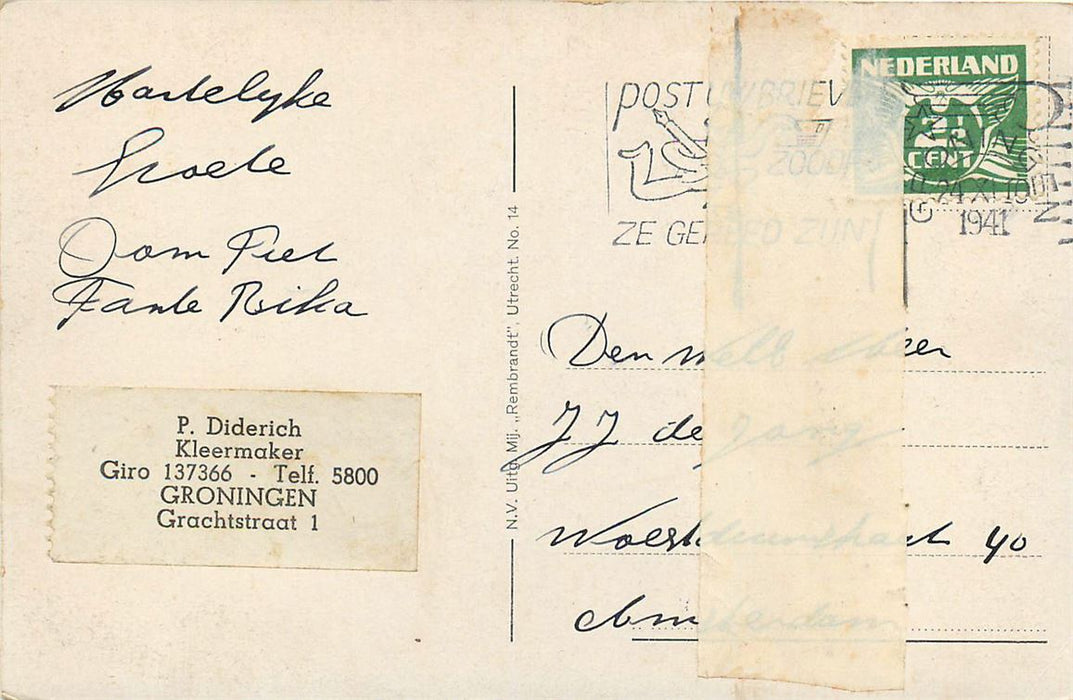 Hartelyke
Groete
Oom Piet
Tante Rika
P. Diderich
Kleermaker
Giro 137366 - Telf. 5800
GRONINGEN
Grachtstraat 1
N.V. Uitg. Mij. „Rembrandt”, Utrecht. No. 14
POST UW BRIEVEN
ZOODRA
ZE GEREED ZIJN
NEDERLAND
2½
CENT
GRONINGEN
24 XI 10
1941
Den Weled. Heer
J J de Jong
Woestduinstraat 40
Amsterdam